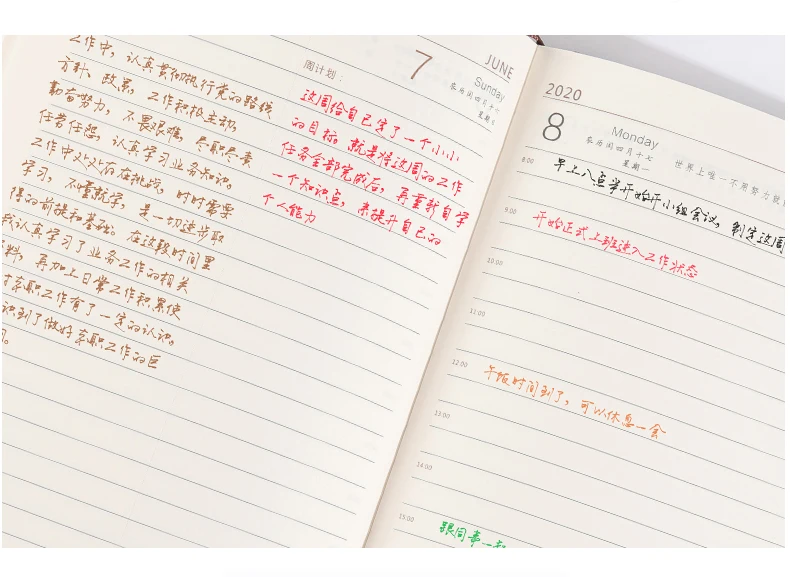 工作中，认真贯彻执行党的路线
方针、政策，工作积极主动，
勤奋努力，不畏艰难，尽职尽责
任劳任怨，认真学习业务知识。
工作中处处存在挑战，时时需要
学习，不懂就学，是一切进步取
得的前提和基础。在这段时间里
我认真学习了业务工作的相关
料，再加上日常工作积累使
本职工作有了一定的认识。
识到了做好本职工作的
周计划：
7
JUNE
Sunday
农历闰四月十六
星期日
这周给自己定了一个小小
的目标。就是将这周的工作
任务全部完成后，再重新自学
一个知识点，来提升自己的
个人能力
2020
8
Monday
农历闰四月十七
星期一
世界上唯一不用努力就
8:00
早上八点半开始开小组会议，制定这周
9:00
开始正式上班进入工作状态
10:00
11:00
12:00
午饭时间到了，可以休息一会
13:00
14:00
15:00
跟同事一起